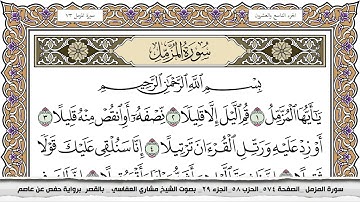 الجزء التاسع والعشرون
سورة المزمل ٧٣
سُورَةُ المُزَّمِّلِ
بِسْمِ ٱللَّهِ ٱلرَّحْمَٰنِ ٱلرَّحِيمِ
يَٰٓأَيُّهَا ٱلْمُزَّمِّلُ ١ قُمِ ٱلَّيْلَ إِلَّا قَلِيلًا ٢ نِّصْفَهُۥٓ أَوِ ٱنقُصْ مِنْهُ قَلِيلًا ٣
أَوْ زِدْ عَلَيْهِ وَرَتِّلِ ٱلْقُرْءَانَ تَرْتِيلًا ٤ إِنَّا سَنُلْقِى عَلَيْكَ قَوْلًا
سورة المزمل الصفحة ٥٧٤ الحزب ٥٨ الجزء ٢٩ بصوت الشيخ مشاري العفاسي بالقصر برواية حفص عن عاصم